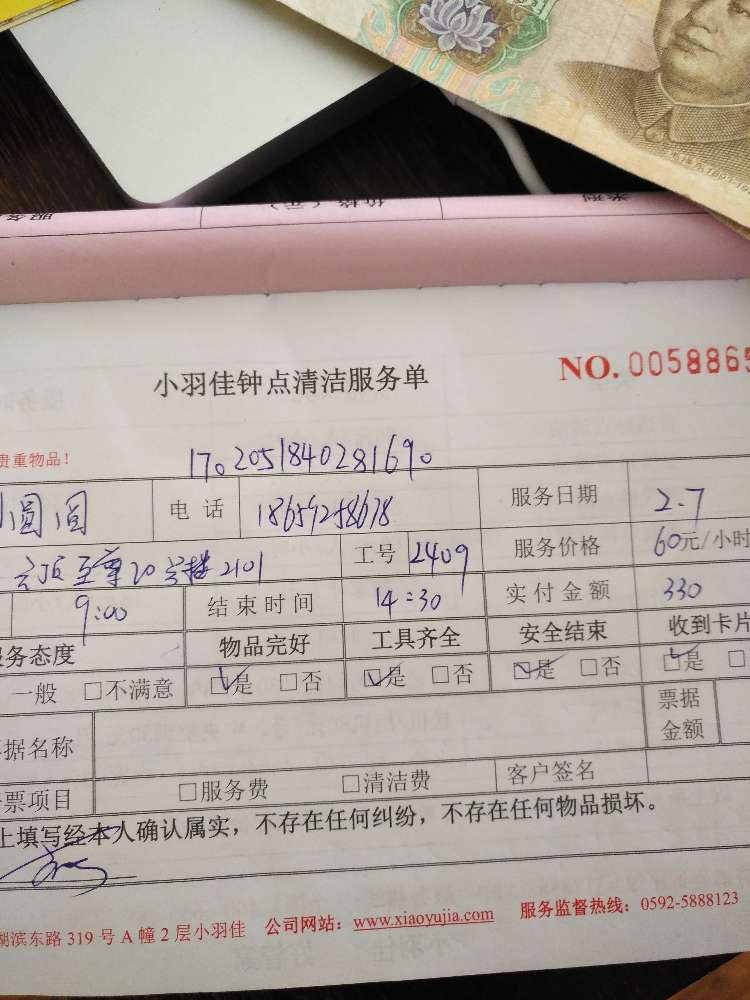 价格（元）
类型
小羽佳钟点清洁服务单
NO. 0058865
贵重物品！
1702051840281690
圆圆 电话 18659258678 服务日期 2.7
至尊20号楼2101 工号 2409 服务价格 60元/小时
9:00 结束时间 14:30 实付金额 330
服务态度 物品完好 工具齐全 安全结束 收到卡片
一般 □不满意 ☑是 □否 ☑是 □否 ☑是 □否 ☑是 □
据名称 票据金额
票项目 □服务费 □清洁费 客户签名
上填写经本人确认属实，不存在任何纠纷，不存在任何物品损坏。
湖滨东路 319 号 A 幢 2 层小羽佳 公司网站：www.xiaoyujia.com 服务监督热线：0592-5888123